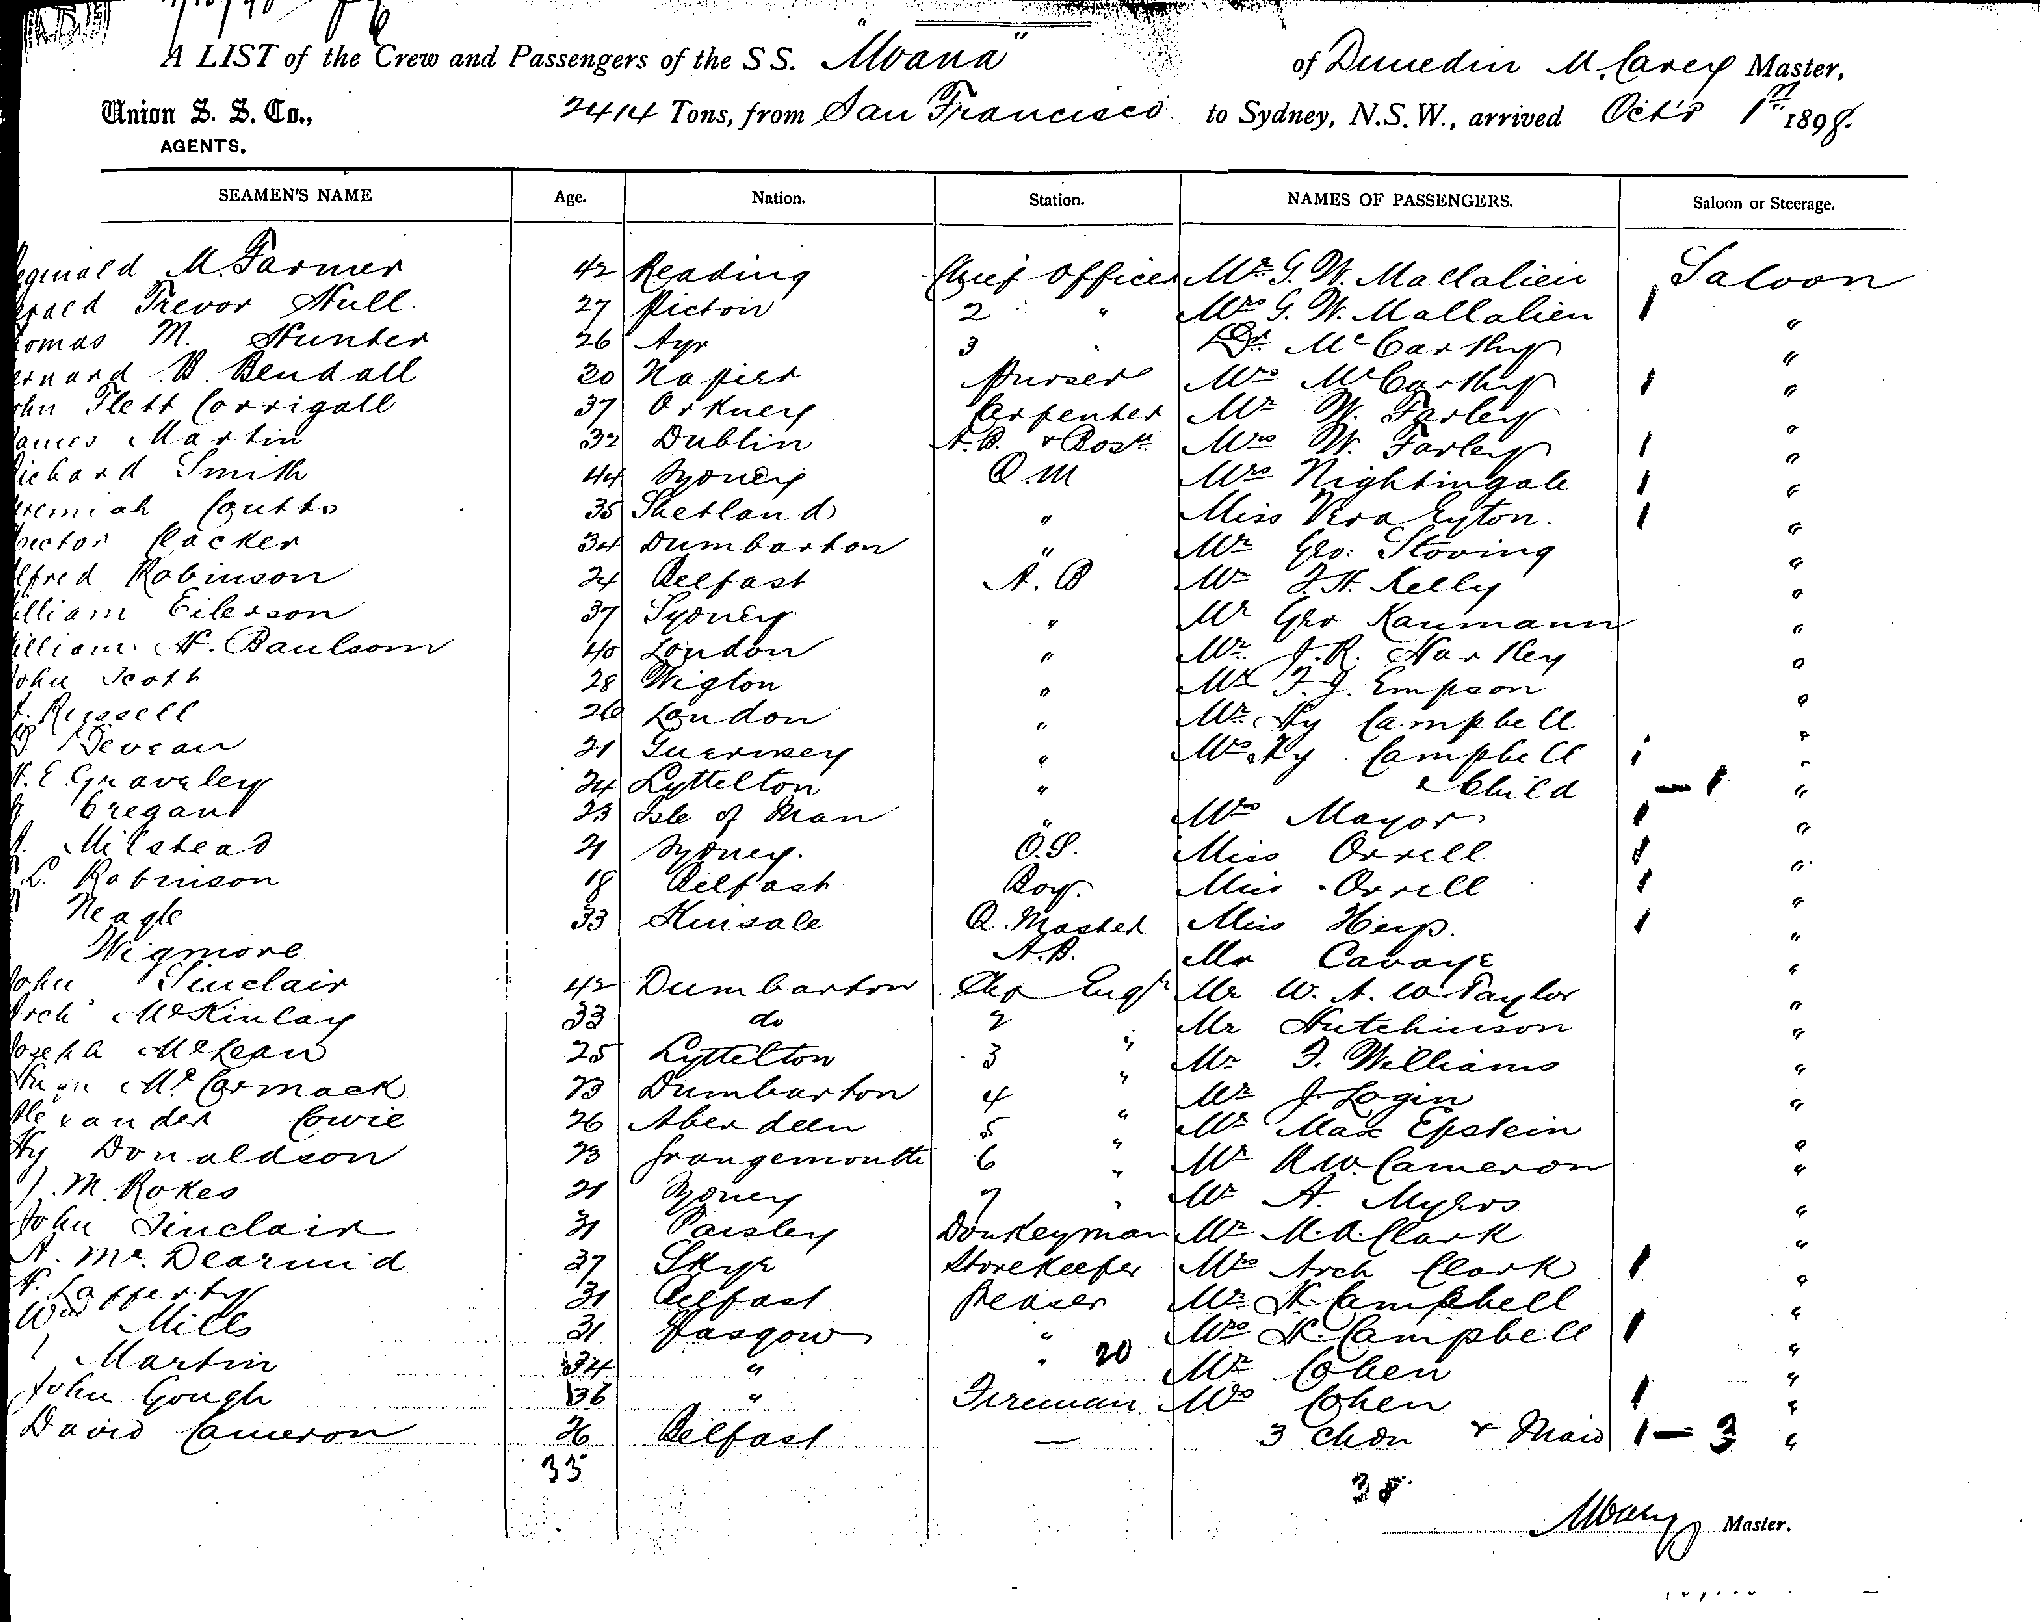 A LIST of the Crew and Passengers of the S S. "Moana" of Dunedin M. Carey Master,
Union S. S. Co., 2414 Tons, from San Francisco to Sydney, N.S.W., arrived Oct'r 1st 1898.
AGENTS.
SEAMEN'S NAME Age. Nation. Station. NAMES OF PASSENGERS. Saloon or Steerage.
eginald M Farmer 42 Reading Chief Officer Mr G. W. Mallalieu Saloon
erald Trevor Hull. 27 Picton 2 " Mrs G. W. Mallalieu 1 "
omas M. Hunter 26 Ayr 3 " Dr McCarthy "
ernard B. Bendall 30 Napier Purser Mrs McCarthy 1 "
ohn Flett Corrigall 37 Orkney Carpenter Mr W. Farley "
ames Martin 32 Dublin A.B. & Bosn Mrs W. Farley 1 "
ichard Smith 44 Sydney Q.M Mrs Nightingale 1 "
eremiah Coutts 35 Shetland " Miss Vera Eyton. 1 "
ector Packer 34 Dumbarton " Mr Geo. Stoving "
lfred Robinson 24 Belfast A. B Mr F. H. Kelly "
illiam Eilerson 37 Sydney " Mr Geo Kaumann "
illiam H. Baulsom 40 London " Mr J. R. Hartley "
John Scott 28 Wigton " Mr F. J. Empson "
Russell 26 London " Mr Hy Campbell "
Devean 21 Guernsey " Mrs Hy Campbell 1 "
H. E. Graveley 24 Lyttelton " & Child — 1 "
Cregan 23 Isle of Man " Mrs Mayor 1 "
Milstead 21 Sydney. O.S. Miss Orrell 1 "
L. Robinson 18 Belfast Boy. Miss Orrell 1 "
Neagle 33 Kinsale Q. Master Miss Heip. 1 "
Wigmore A.B. Mr Cavaye "
John Sinclair 42 Dumbarton Chf Engr Mr W. A. W Taylor "
Arch McKinlay 33 do 2 " Mr Hutchinson "
Joseph McLean 25 Lyttelton 3 " Mr F. Williams "
Hugh McCormack 23 Dumbarton 4 " Mr J. Login "
Alexander Cowie 26 Aberdeen 5 " Mr Max Epstein "
Hy Donaldson 23 Grangemouth 6 " Mr R W. Cameron "
J. M. Rokes 21 Sydney 7 " Mr A. Myers "
John Sinclair 31 Paisley Donkeyman Mr M. A. Clark "
A. McDearmid 27 Skye Storekeeper Mrs Arch Clark 1 "
H. Lafferty 31 Belfast Greaser Mr H. Campbell "
Wm Mills 31 Glasgow " Mrs H. Campbell 1 "
Martin 34 " " 20 Mr Cohen "
John Gough 36 " Fireman Mrs Cohen 1 "
David Cameron 26 Belfast — 3 Chdn & Maid 1 — 3 "
35 38
MCarey Master.